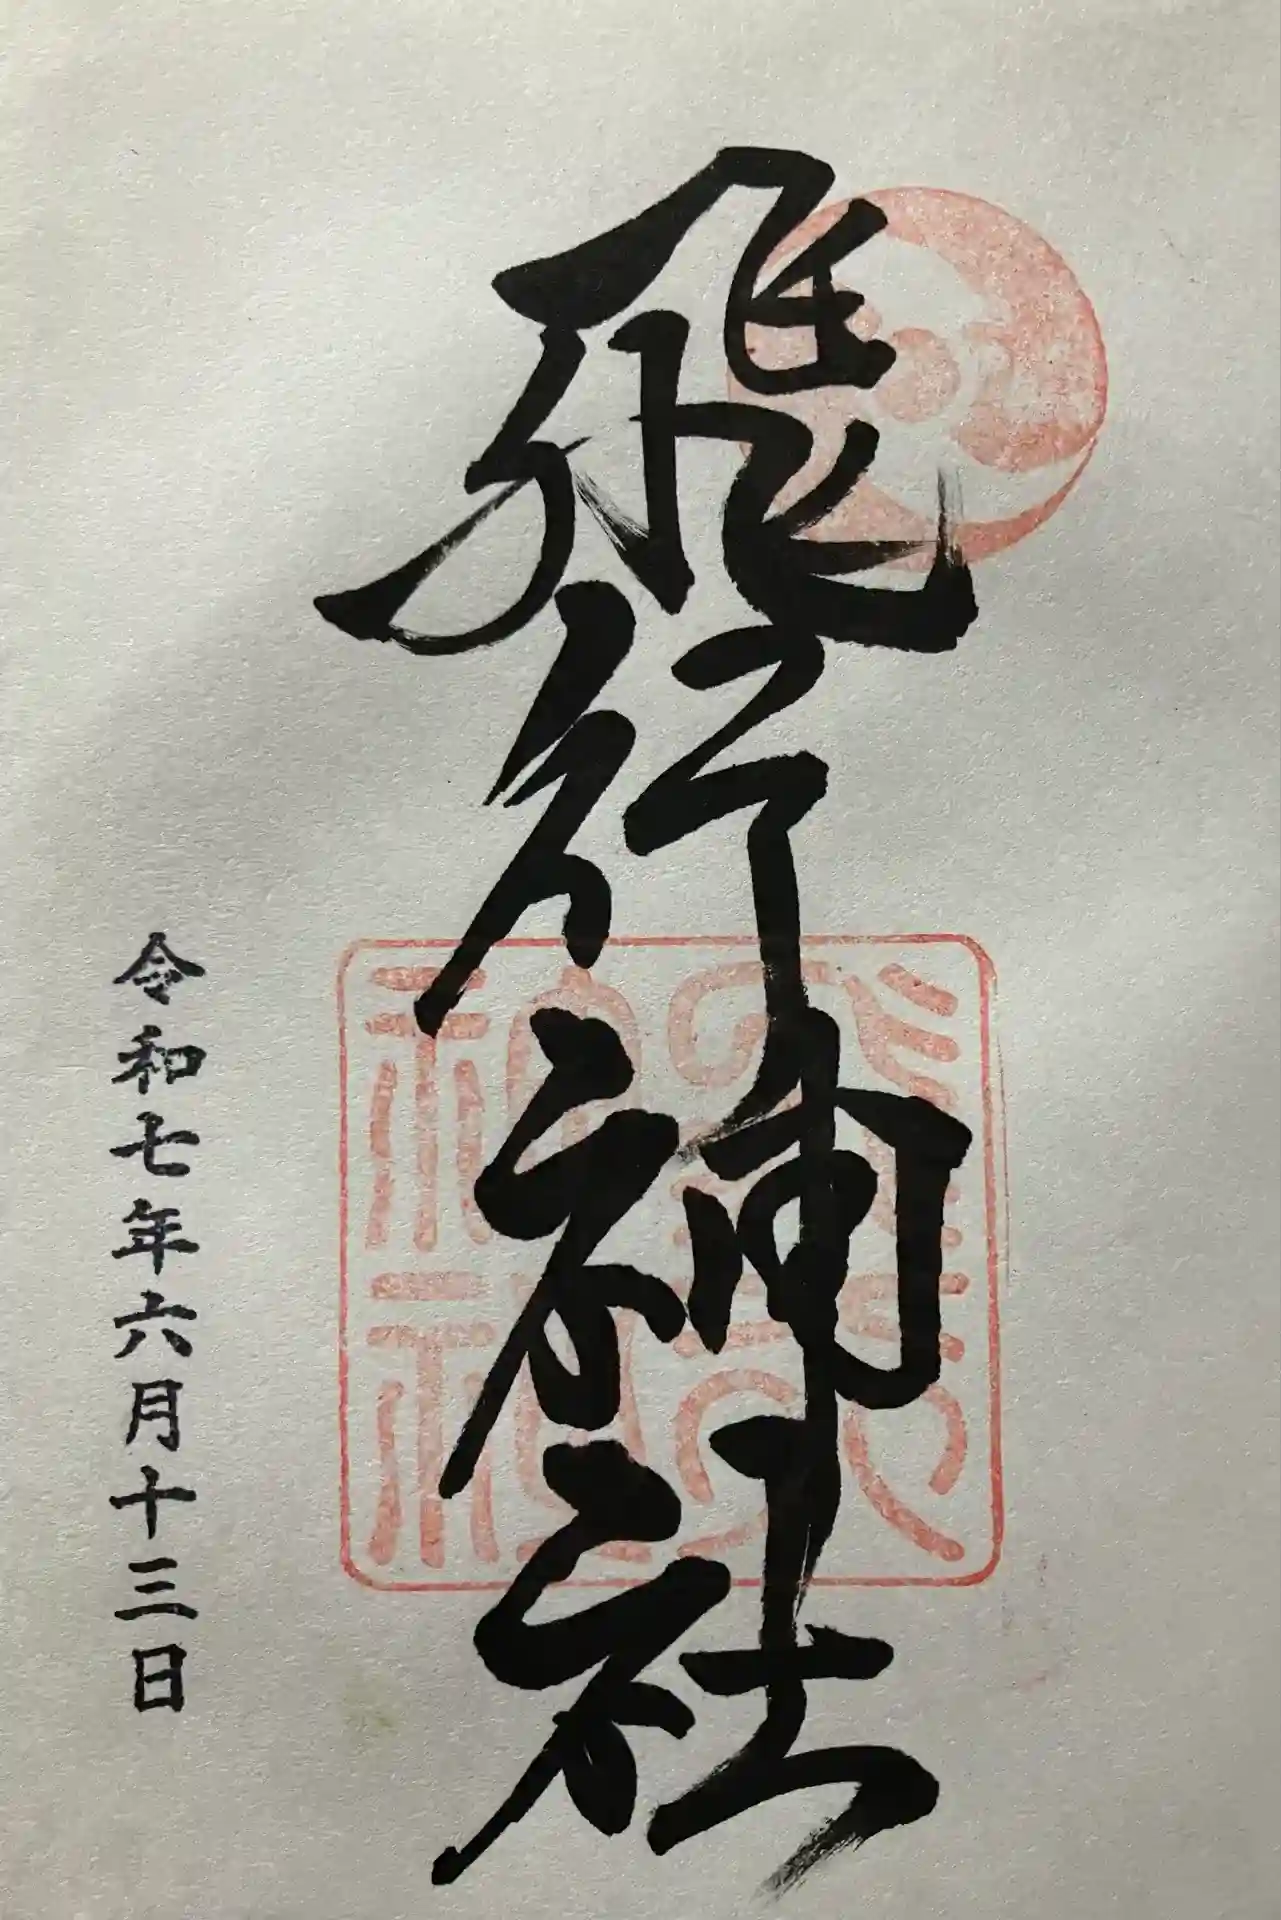 飛行神社
令和七年六月十三日
飛行
神社